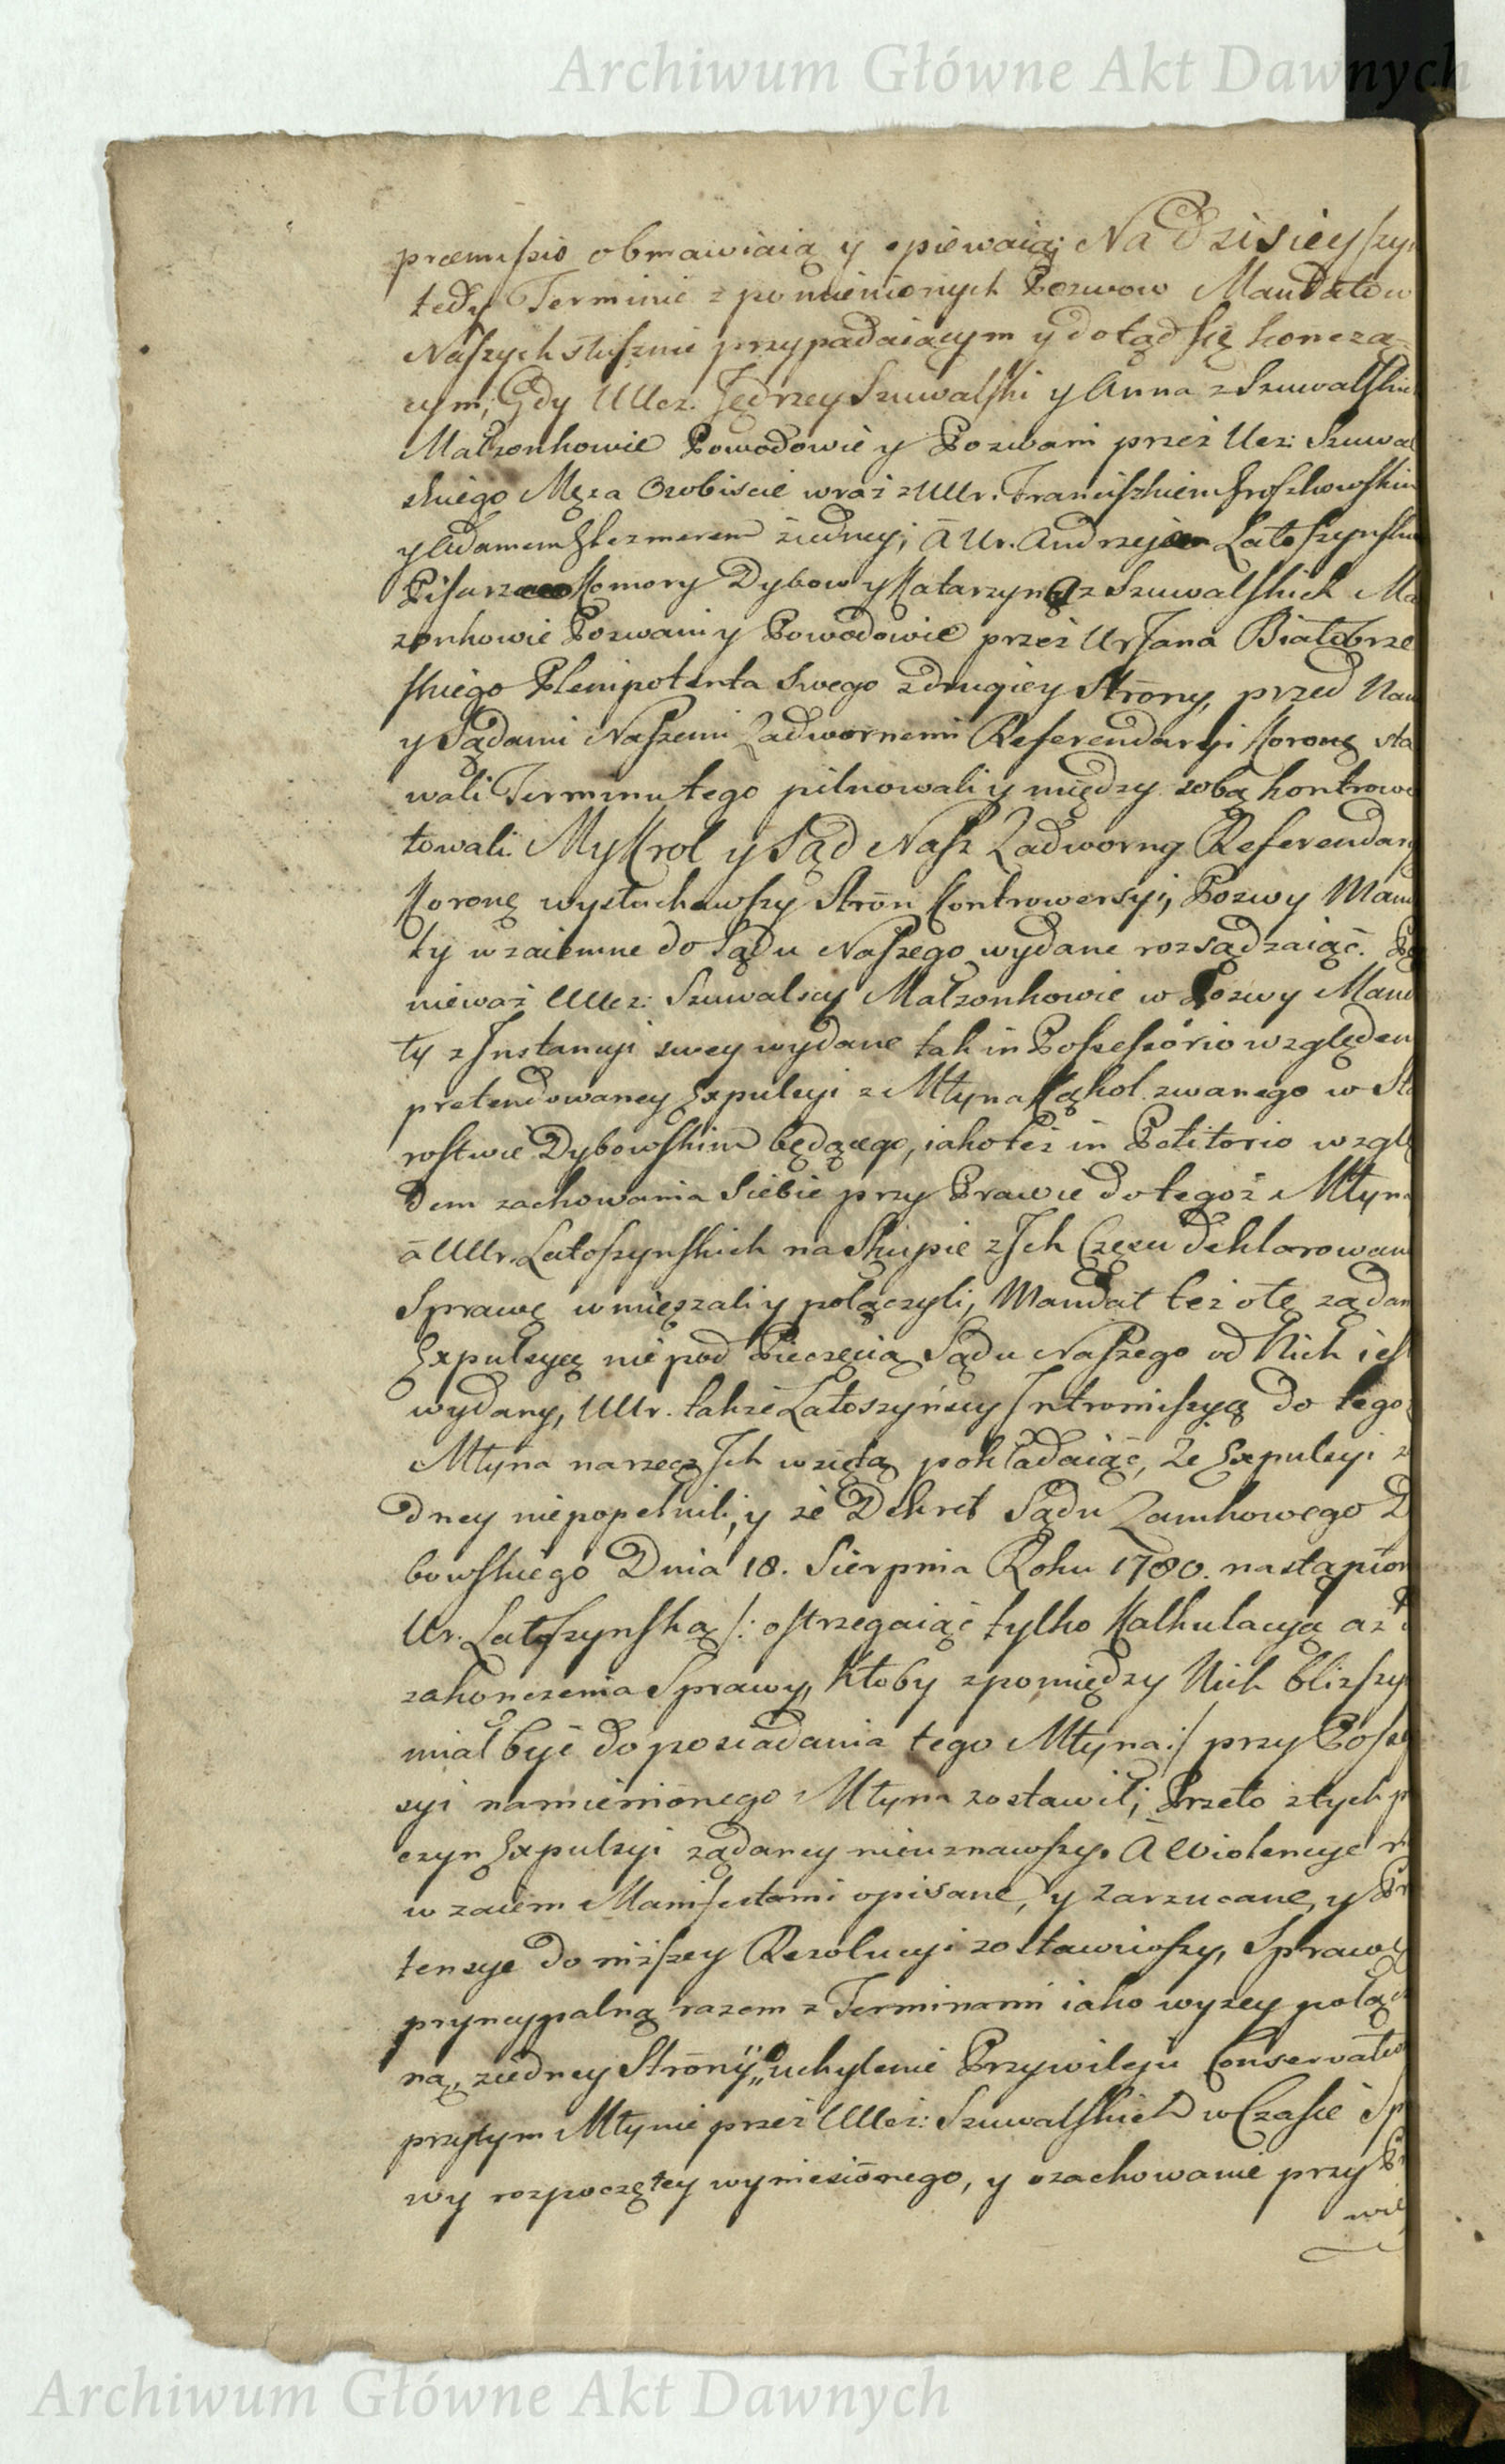 Archiwum Główne Akt Dawnych
præmisio obmawiaią y opiewaią; Na Dzisieyszy
tedy Terminie z pomienionych Pozwow Mandatow
Naszych słusznie przypadaiącym y dotąd się koncza=
cym, Gdy UUcz. Jędrzey Szuwalski y Anna z Szuwalskich
Małżonkowie Powodowie y Pozwani przez Ucz: Szuwal
skiego Męża Osobiscie wraz z UUr. Franciszkiem
y Adamem ziedney; à Ur. Andrzej Latoszynski
Pisarz Komory Dybow y Katarzyna z Szuwalskich Ma
zonkowie Pozwani y Powodowie przez Ur Jana Białobrze
skiego Plenipotenta Swego z drugiey Strony, przed Nam
y Sądami Naszemi Zadwornemi Referendaryi Koronę sta
wali Terminu tego pilnowali y między sobą kontrowe
towali. My Krol y Sąd Nasz Zadworny Referendary
Koronę wysłuchawszy Stron Kontrowersyi, Pozwy Manda
ty wzaiemne do Sądu Naszego wydane rozsądzaiąc. Po
nieważ UUcz: Szuwalscy Małzonkowie w Pozwy Manda
ty z Instancyi swey wydane tak in Possessorio względem
pretendowaney Expulsyi z Młyna Kąkol zwanego w Sta
rostwie Dybowskim będącego, iakoteż in Petitorio wzglę
dem zachowania Siebie przy Prawie do tegoż Młyna
à UUr. Latoszynskich na Skupie z Ich Częsci deklarowan
Sprawę wmięszali y połączyli, Mandat też o tę żądan
Expulsyą nie pod Pieczęcią Sądu Naszego od Nich iest
wydany, UUr. także Latoszyńscy Intromissyą do tego
Młyna na rzecz Ich wziętą pokładaiąc, że Expulsyi ża
dney niepopełnili, y że Dekret Sądu Zamkowego Dy
bowskiego Dnia 18. Sierpnia Roku 1780. nastąpion
Ur. Latoszynską /: ostrzegaiąc tylko Kalkulacyą aż d
zakonczenia Sprawy, Ktoby zpomiędzy Nich bliższy
miał być do posiadania tego Młyna :/ przy Posse
syi namienionego Młyna zostawił; Przeto z tych pr
czyn Expulsyi żądaney nieuznawszy. A Wiolencye
wzaiem Manifestami opisane, y zarzucane, y Pre
tensye do niższey Rezolucyi zostawiwszy, Sprawę
pryncypalną razem z Terminami iako wyzey połącz
ną, ziedney Strony „uchylenie Przywileju Conservatio
przytym Młynie przez UUcz: Szuwalskich w Czasie Spr
wy rozpoczętey wyniesionego, y ozachowanie przy Pr
wie
Archiwum Główne Akt Dawnych